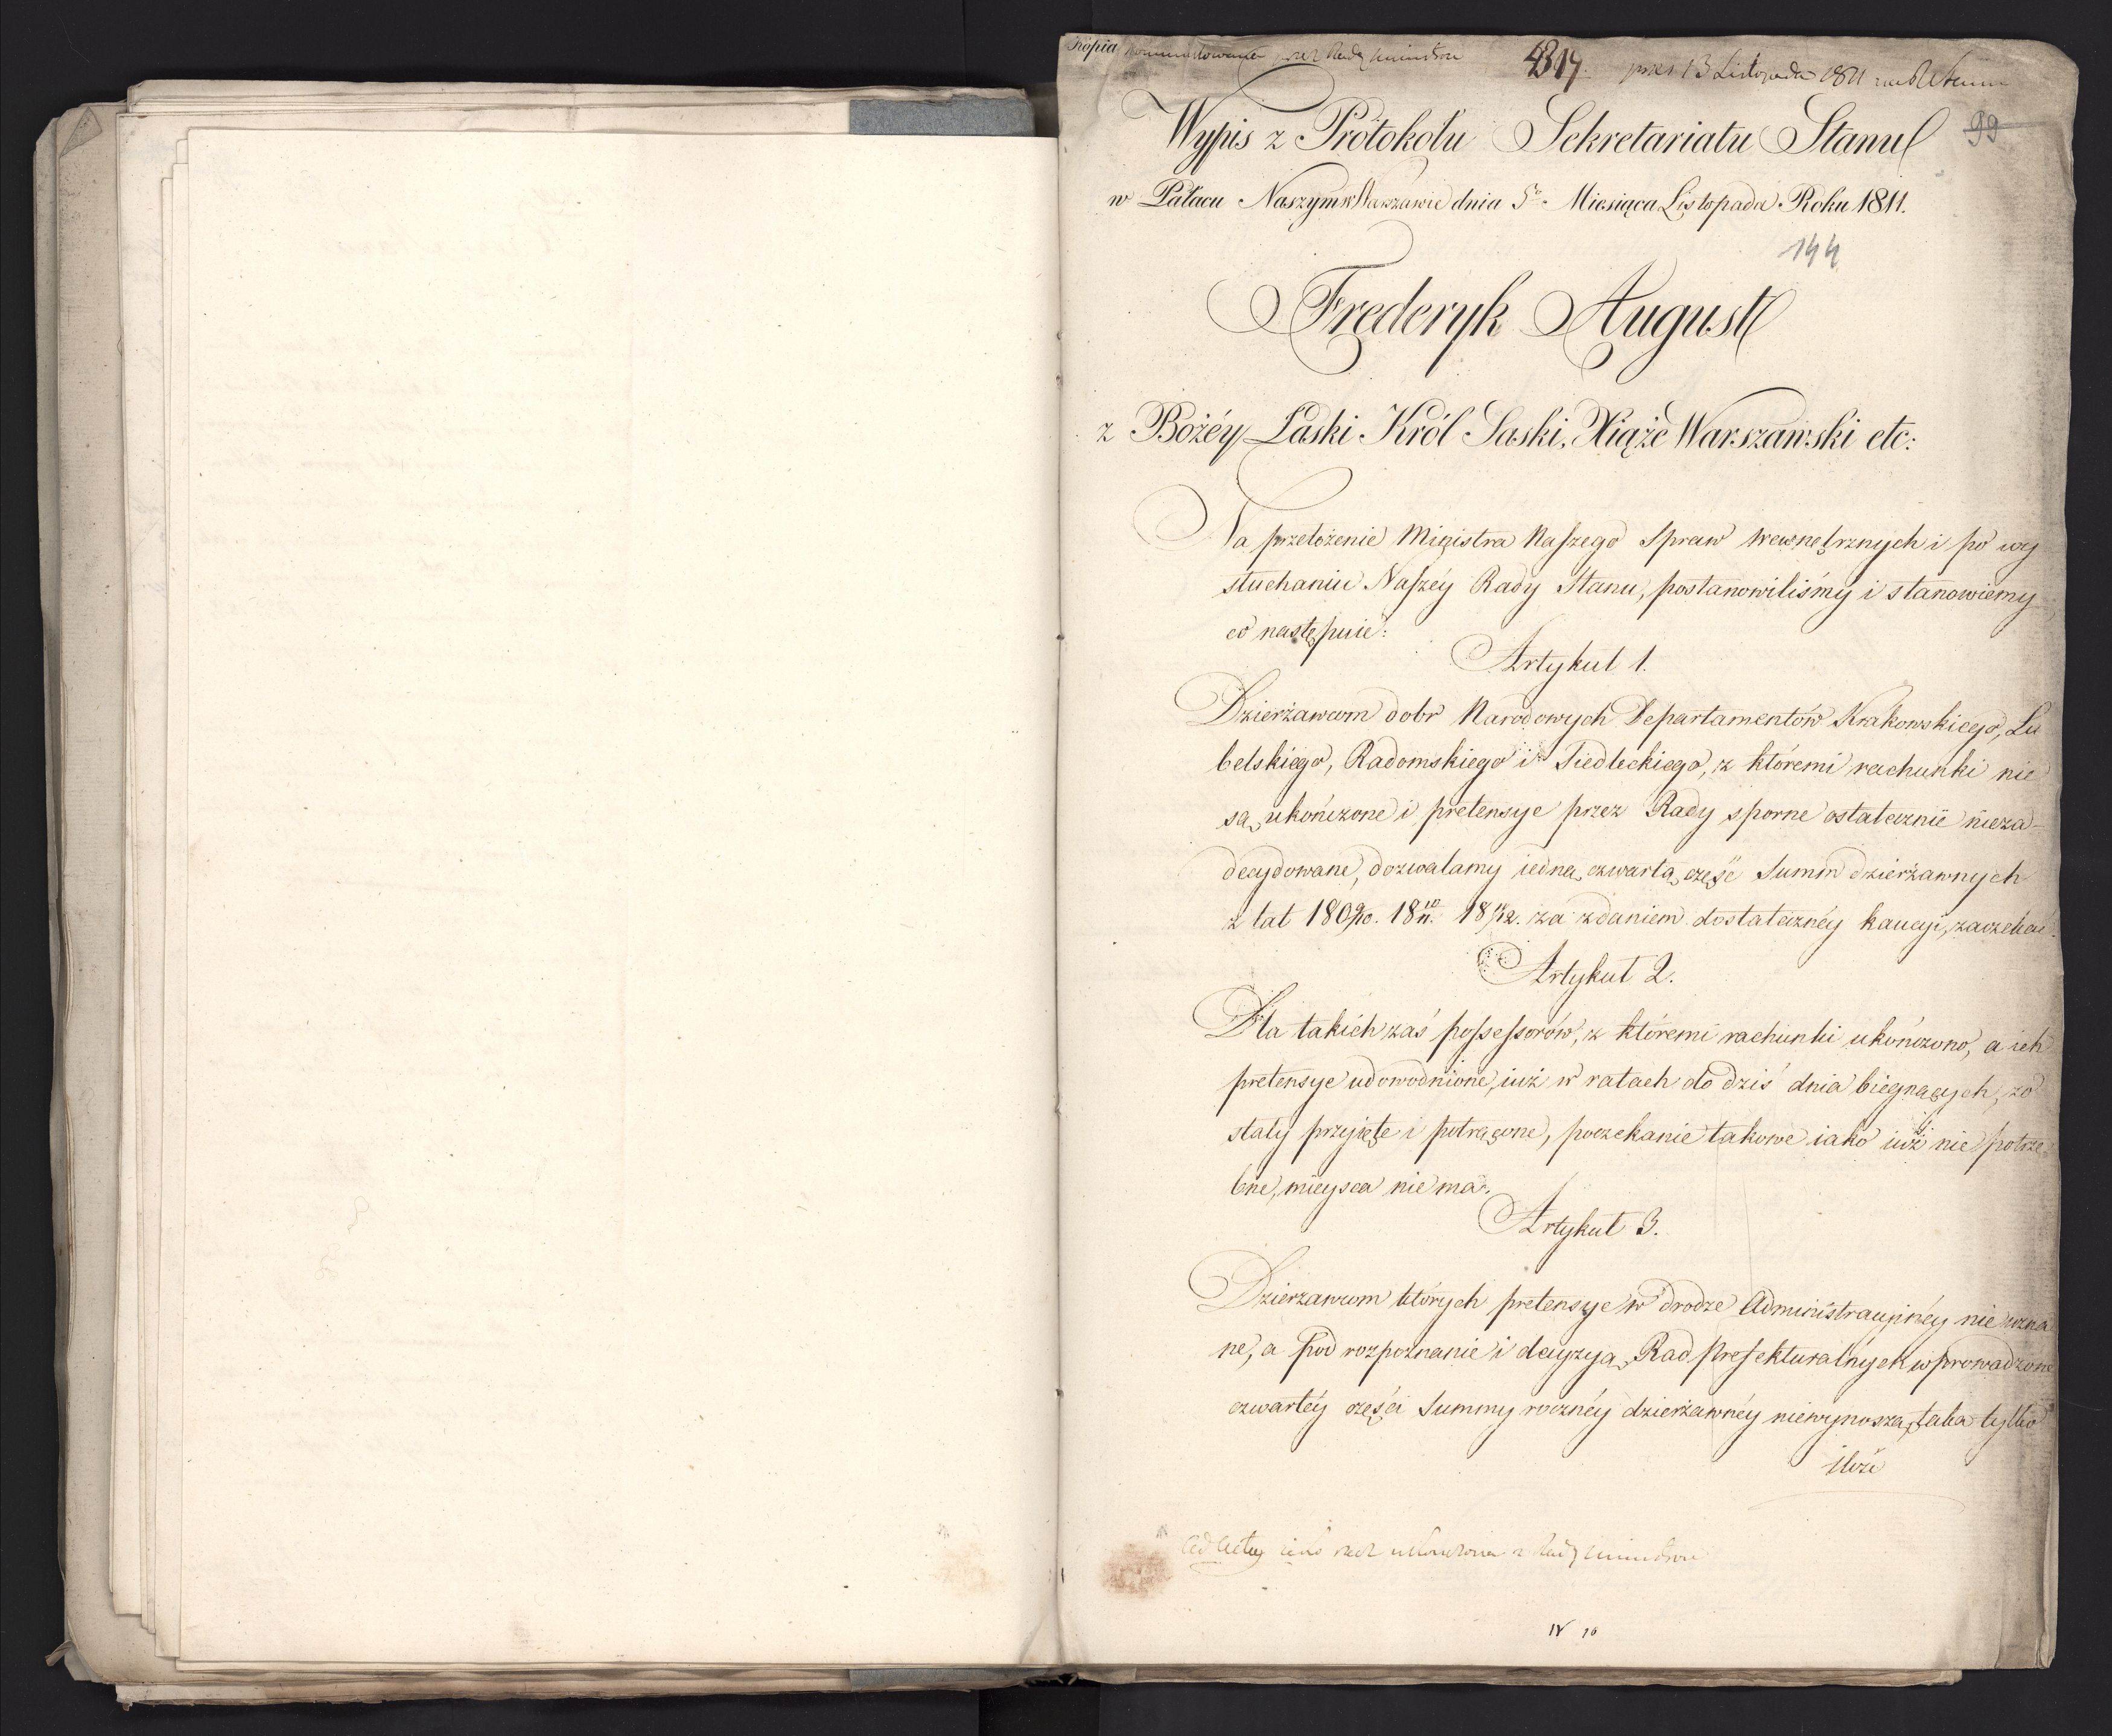 Kopia kommunikowana przez Radę Ministrów 4817. prez 13 Listopada 1811
Wypis z Protokołu Sekretariatu Stanu 99
w Pałacu Naszym w Warszawie dnia 5º Miesiąca Listopada Roku 1811.
144
Frederyk August
z Bożéy Łaski Król Saski, Xiąże Warszawski etc:
Na przełożenie Ministra Naszego Spraw wewnętrznych i po wy
słuchaniu Naszéy Rady Stanu, postanowiliśmy i stanowiemy
co następuie:
Artykuł 1.
Dzierżawcom dobr Narodowych Departamentów Krakowskiego, Lu
belskiego, Radomskiego i Siedleckiego, z któremi rachunki nie
są ukończone i pretensye przez Rady sporne ostatecznie nieza-
decydowane, dozwalamy iedną czwartą część Summ dzierżawnych
z lat 1809/10. 18 10/11. 18 11/12. za zdaniem dostatecznéy kaucyi, zaczekać.
Artykuł 2.
Dla takich zaś possessorów, z któremi rachunki ukończono, a ich
pretensye udowodnione, iuż w ratach do dziś dnia biegnących, zo
stały przyięte i potrącone, poczekanie takowe iako iuż nie potrze
bne, mieysca nie ma.
Artykuł 3.
Dzierzawcom których pretensye w drodze Administracyinéy nie uzna
ne, a pod rozpoznanie i decyzyą Rad Prefekturalnych wprowadzone
czwartéy części Summy rocznéy dzierżawnéy niewynoszą, taka tylko
ilość
Ad Acta
IV 16